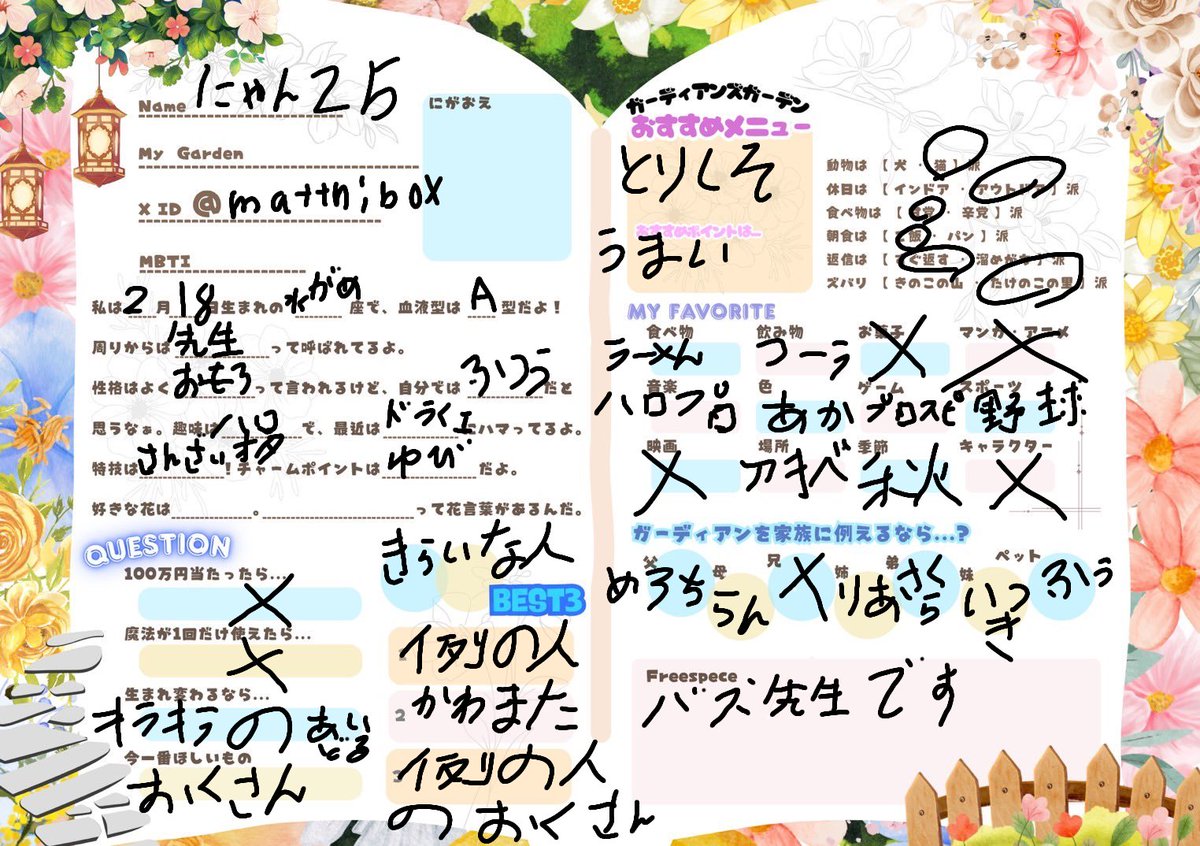 Name にゃん25
にがおえ
My Garden
X ID @mattnibox
MBTI
私は2月18日生まれのみずがめ座で、血液型はA型だよ!
周りからは先生って呼ばれてるよ。
性格はよくおもろって言われるけど、自分ではふつうだと
思うなぁ。趣味はハロで、最近はドライエにハマってるよ。
特技はさんざい!チャームポイントはゆびだよ。
好きな花は 。 って花言葉があるんだ。
QUESTION
100万円当たったら...
×
魔法が1回だけ使えたら...
×
生まれ変わるなら...
オラオラのあいどる
今一番ほしいもの
おくさん
きらいな人
BEST3
例の人
2 かわまた
例の人
のおくさん
ガーディアンズガーデン
おすすめメニュー
とりしそ
おすすめポイントは...
うまい
動物は【 犬 ・ 猫 】派
休日は【 インドア ・ アウトドア 】派
食べ物は【 甘党 ・ 辛党 】派
朝食は【 ご飯 ・ パン 】派
返信は【 すぐ返す ・ 溜めがち 】派
ズバリ【 きのこの山 ・ たけのこの里 】派
MY FAVORITE
食べ物 飲み物 お菓子 マンガ・アニメ
ラーメん コーラ × ×
音楽 色 ゲーム スポーツ
ハロプロ あか プロスピ 野球
映画 場所 季節 キャラクター
× アキバ 秋 ×
ガーディアンを家族に例えるなら...?
父 母 兄 姉 弟 妹 ペット
めろち らん × りあ さくら いつき ふう
Freespece
バズ先生です